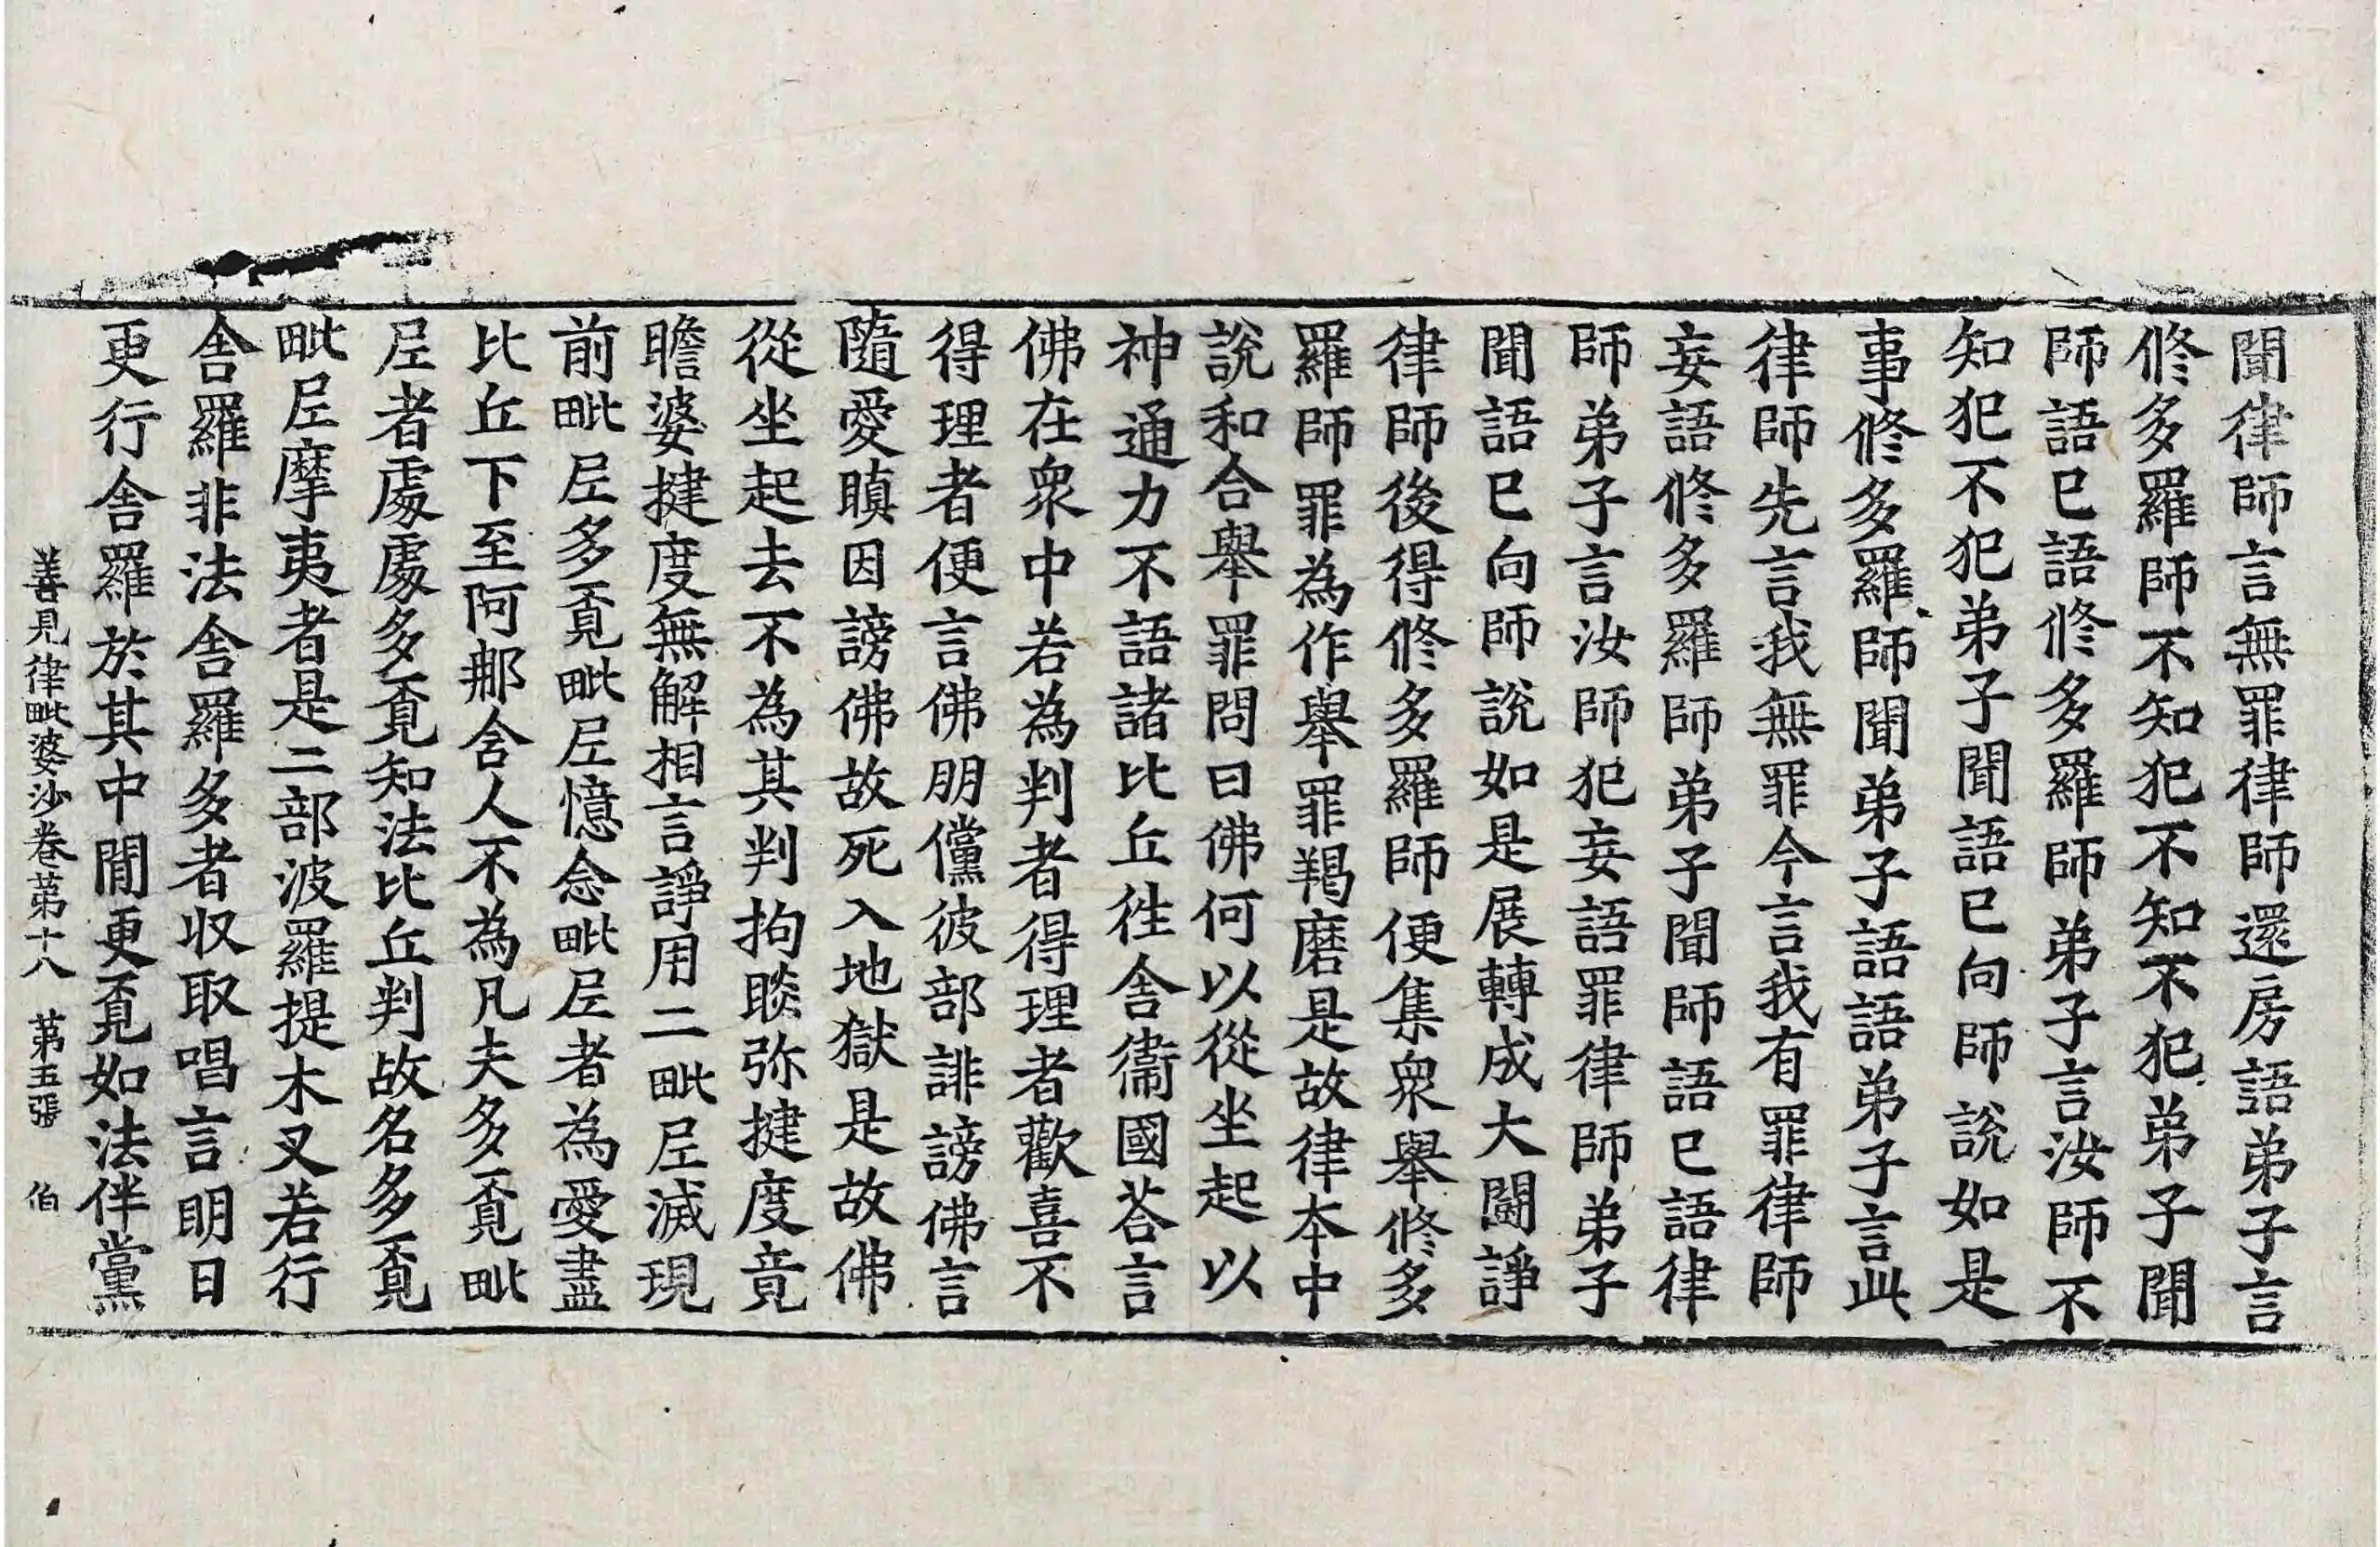 聞律師言無罪律師還房語弟子言
修多羅師不知犯不知不犯弟子聞
師語已語修多羅師弟子言汝師不
知犯不犯弟子聞語已向師說如是
事修多羅師聞弟子語語弟子言此
律師先言我無罪今言我有罪律師
妄語修多羅師弟子聞師語已語律
師弟子言汝師犯妄語罪律師弟子
聞語已向師說如是展轉成大鬪諍
律師後得修多羅師便集衆舉修多
羅師罪為作舉罪羯磨是故律本中
說和合舉罪問曰佛何以從坐起以
神通力不語諸比丘徃舍衞國荅言
佛在衆中若為判者得理者歡喜不
得理者便言佛朋儻彼部誹謗佛言
隨愛瞋因謗佛故死入地獄是故佛
從坐起去不為其判拘睒弥揵度竟
瞻婆揵度無解相言諍用二毗尼滅現
前毗尼多覓毗尼憶念毗尼者為愛盡
比丘下至阿那含人不為凡夫多覓毗
尼者處處多覓知法比丘判故名多覓
毗尼摩夷者是二部波羅提木叉若行
舍羅非法舍羅多者収取唱言明日
更行舍羅於其中閒更覓如法伴黨
善見律毗婆沙卷苐十八 苐五張 伯